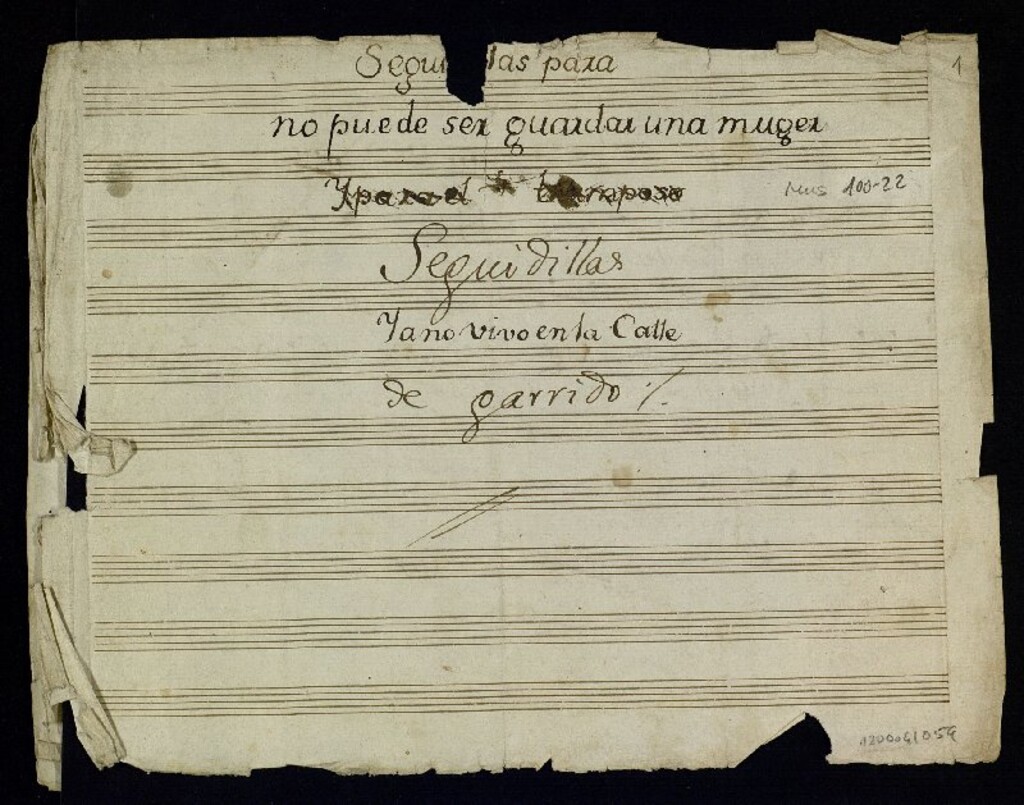 Segui llas para
1
no puede ser guardar una muger
Y para el tramposo
Mus 100-22
Seguidillas
Ya no vivo en la Calle
de garrido %.
1200041059